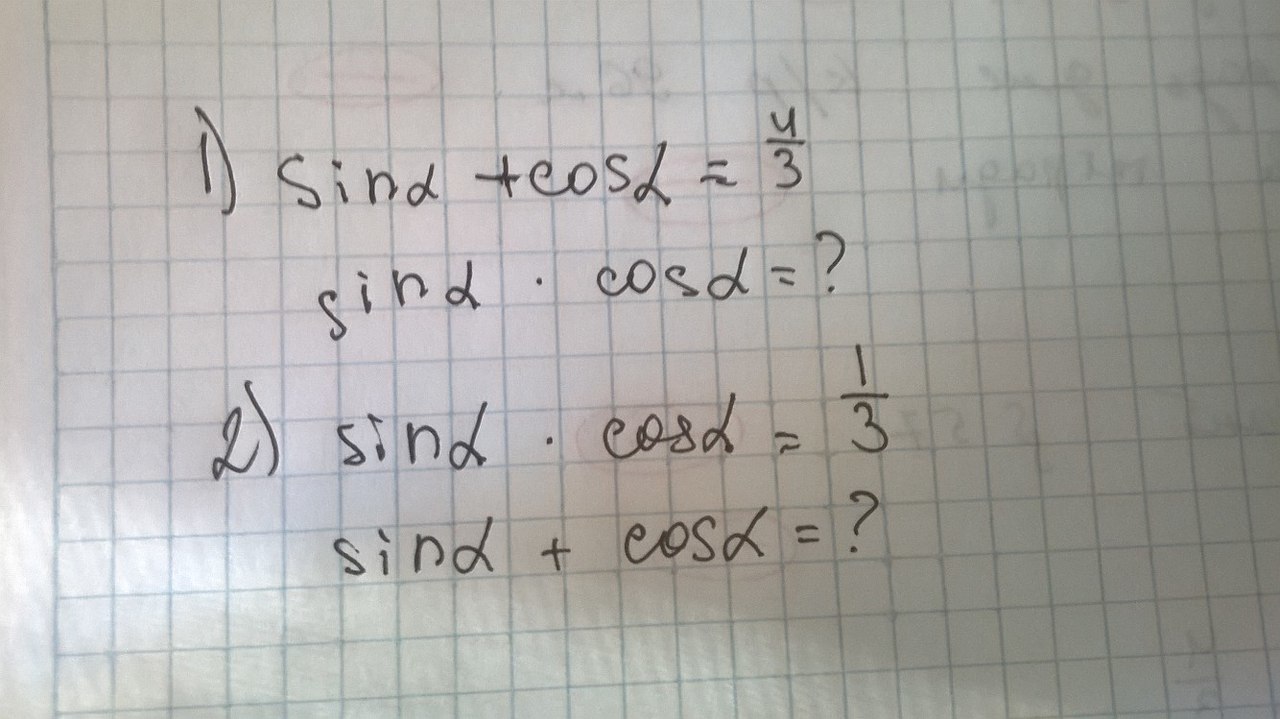 1) sinα + cosα = 4/3
sinα · cosα = ?
2) sinα · cosα = 1/3
sinα + cosα = ?